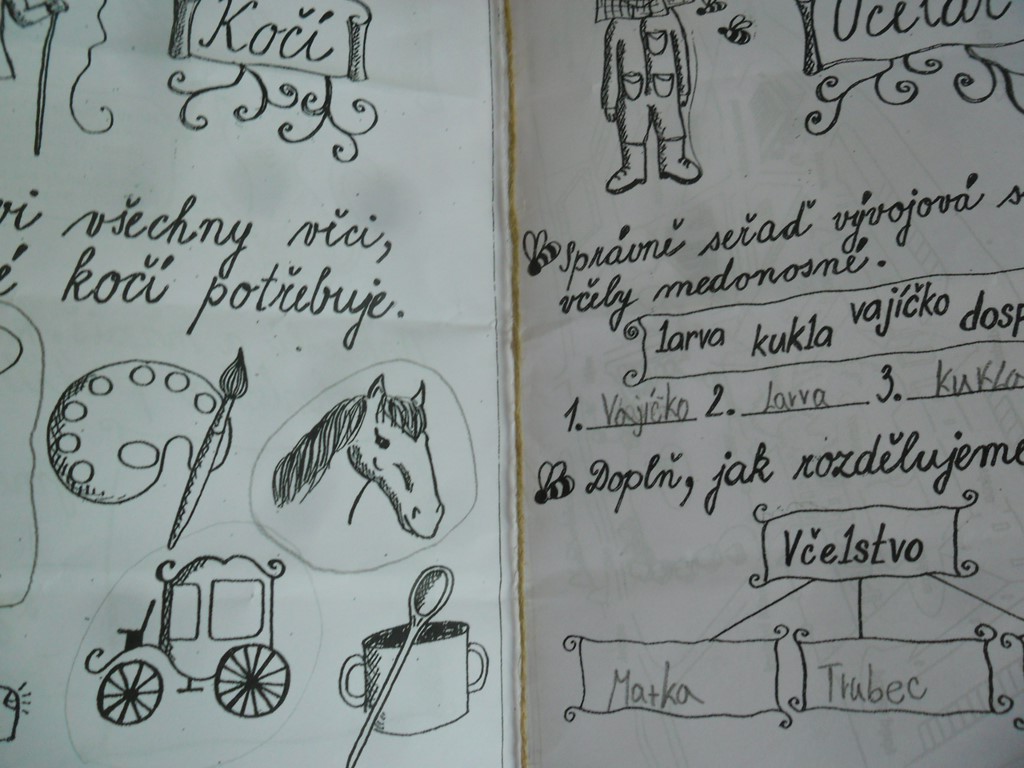 Kočí
všechny věci,
kočí potřebuje.
Včelař
Správně seřaď vývojová
včely medonosné.
larva kukla vajíčko dosp
1. Vajíčko 2. Larva 3. Kukla
Doplň, jak rozdělujeme
Včelstvo
Matka Trubec